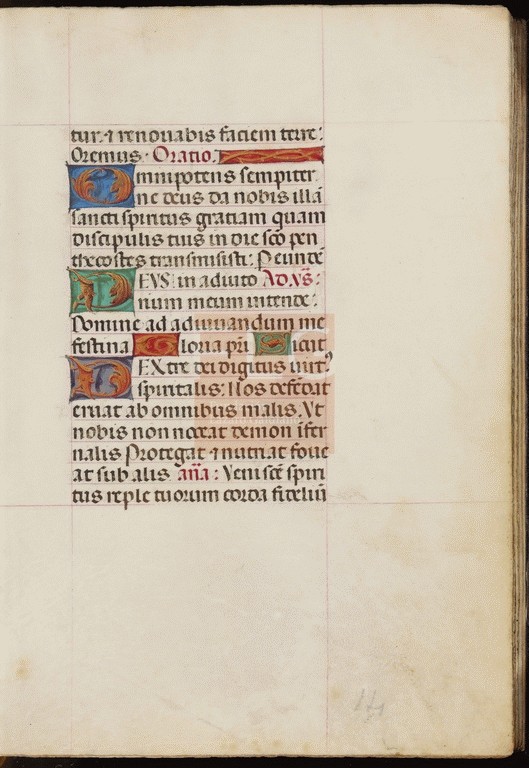 tur. ⁊ renouabis faciem terre:
Oremus. Oratio.
Omnipotens sempiter
ne deus da nobis illā
sancti spiritus gratiam quam
discipulis tuis in die scō pen
thecostes transmisisti: Per eundē
DEVS in adiuto Ad vs̄:
rium meum intende:
Domine ad adiuuandum me
festina Gloria pri Sicut
DEXtre dei digitus uirtꝰ
spiritalis: Nos defēdat
eruat ab omnibus malis. Vt
nobis non noceat demon īfer
nalis Protegat ⁊ nutriat foue
at sub alis aña: Veni scē spiri
tus reple tuorum corda fideliū